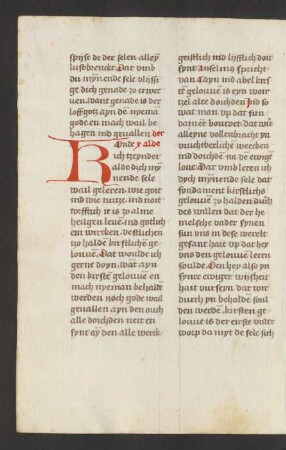 spijse de der selen alleyn
lustbrenckt. Dat vmb
du mynende sele vlijsse
ge dich genade zo erwer
uen. want genade is der
loff gotz. ayn de nyema
gode. en mach wol be
hagen ind geuallen der
ich tzeynder
alde dich my
nende sele
wail geleren. wie goit
ind wie nutze. ind noit
torfflich it is zo alme
heilgen leuen. ind gotlich
em wercken. vestlichen
zo halden kirstliche ge
louue. Dat woulde ich
gerne doyn. wat ayn
den kirste gelouue en
mach nyeman behalde
werden noch gode wail
genallen. ayn den ouch
alle doichden neit en
synt. ay den alle werck
geistlich ind lijfflich doit
synt. Anselmus spricht.
van cayn ind abel kirs
te gelouue is eyn wor
tzel alre doichden. Ind so
wat man vp dat fun
dament bouwet. dat wirt
alleyne vollenbracht zo
vruchtberliche wercken
ind doichde na de ewige
loue. Dat vmb leren ich
dich mynende sele dat
fondament kirstlichs
gelouue zo halden duch
des willen dat der he
melsche vader synen
sun vns in den rosen
gesant hait vp dat hey
vns den gelouue leren
soulde. Den hey also yn
synre ewiger wijsheit
hait vursyn. dat wir
durch yn behalde soul
den werden. kirsten ge
louue is der eirste vnder
worp da myt de sele sich